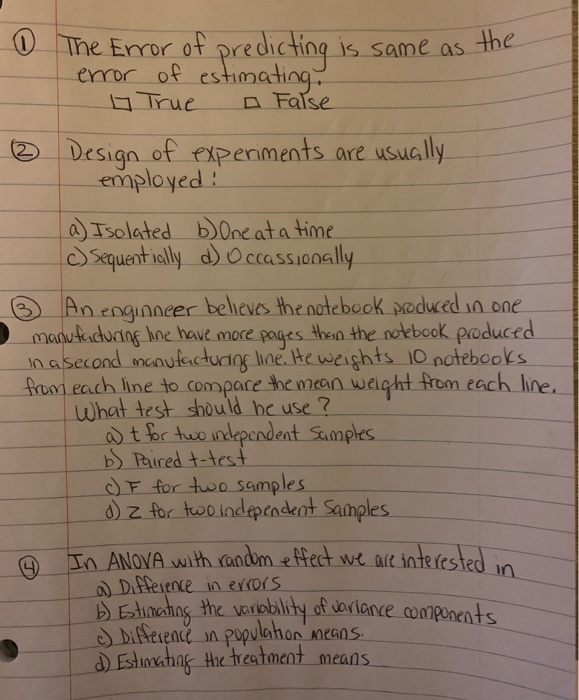 ① The Error of predicting is same as the
error of estimating.
□ True □ False
② Design of experiments are usually
employed:
a) Isolated b) One at a time
c) Sequentially d) Occassionally
③ An enginneer believes the notebook produced in one
manufacturing line have more pages than the notebook produced
in a second manufacturing line. He weights 10 notebooks
from each line to compare the mean weight from each line.
What test should be use?
a) t for two independent samples
b) Paired t-test
c) F for two samples
d) Z for two independent Samples
④ In ANOVA with random effect we are interested in
a) Difference in errors
b) Estimating the variability of variance components
c) Difference in population means.
d) Estimating the treatment means